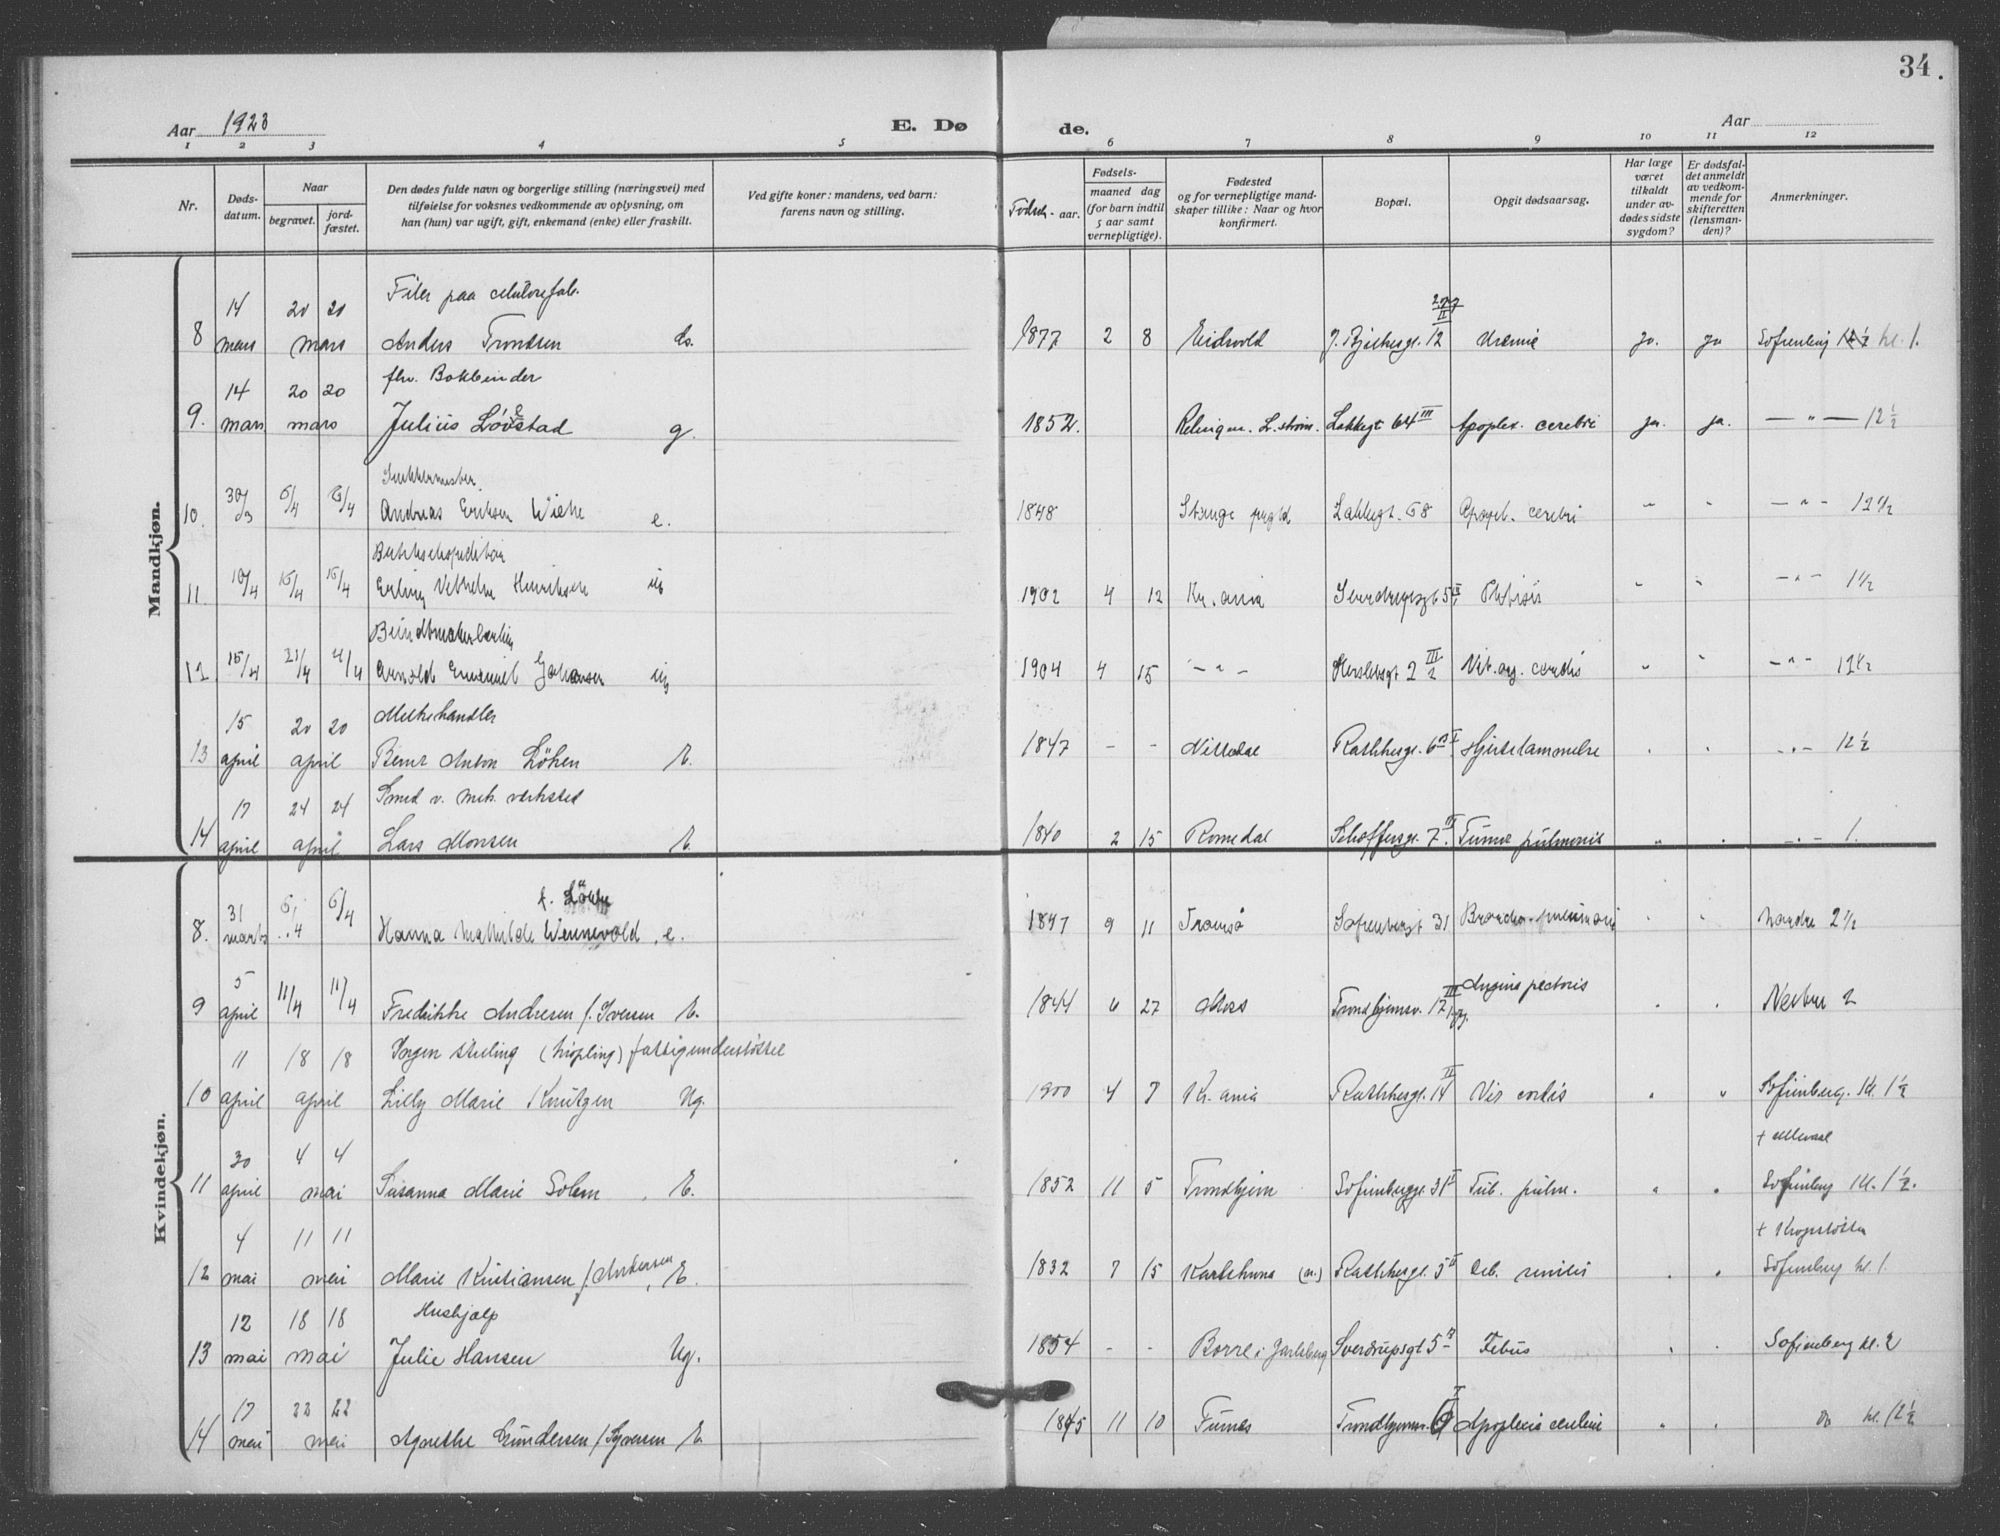 34.
Aar 1923
E. Dø
de.
Aar
1 2 3 4 5 6 7 8 9 10 11 12
Nr.
Døds-
datum.
Naar
begravet.
jord-
fæstet.
Den dødes fulde navn og borgerlige stilling (næringsvei) med
tilføielse for voksnes vedkommende av oplysning, om
han (hun) var ugift, gift, enkemand (enke) eller fraskilt.
Ved gifte koner: mandens, ved barn:
farens navn og stilling.
Fødsels- aar.
Fødsels-
maaned dag
(for barn indtil
5 aar samt
vernepligtige).
Fødested
og for vernepligtige mand-
skaper tillike: Naar og hvor
konfirmert.
Bopæl.
Opgit dødsaarsag.
Har læge
været
tilkaldt
under av-
dødes sidste
sygdom?
Er dødsfal-
det anmeldt
av vedkom-
mende for
skifteretten
(lensman-
den)?
Anmerkninger.
Mandkjøn.
14 20 20 Filer paa
8 mars mars Anders Trondsen 1877 2 8 Eidsvold 12 Uræmie ja. ja Sofienberg kl. 1.
14 20 20 fhv. Bokbinder
9. mars mars Julius Løvstad g. 1852. Lakkegt 64 III Apoplex. cerebri ja. ja. — " — 12 1/2
10. 30/3 5/4 5/4 Andreas Eriksen e. 1848 Stange Lakkegt. 68 Apopl. cerebri " " — " — 12 1/2
11. 10/4 15/4 15/4 Erling Henriksen ug 1902 4 12 Kr.ania Phtisis " " — " — 1 1/2
Buntmakerlærling
12 15/4 21/4 21/4 Arnold Emanuel Johansen ug 1904 4 15 — " — Herslebsgt 2 III Vit. org. cordis " " — " — 12 1/2
15 20 20 Melkehandler
13 april april Bernt Anton Løken E. 1847 - - Nittedal Rathkesgt. 6 Hjertelammelse " " — " — 12 1/2
17 24 24 Smed v. mek. verksted
14 april april Lars Monsen E. 1840 2 15 Romedal Schæffersgt. 7 Tumor pulmonis " " — " — 1.
Kvindekjøn.
31 5/4 5/4 f. Løkke
8. marts Hanna Mathilde Wennevold, e. 1847 9 11 Tromsø Sofienbergt 31 Broncho-pneumoni " " Nordre 2 1/2
5 11/4 11/4
9 april Fredrikke Andresen f. Iversen E. 1844 6 27 Moss Trondhjemsv. 12 III Angina pectoris " " Vestre 2
11 18 18 Ingen stilling (krøpling) fattigunderstøttet
10 april april Lilly Marie Knutzen Ug. 1900 4 7 Kr.ania Rathkesgt. 14 II Vit cordis " " Sofienberg. kl. 1 1/2
+ Ullevaal
30 4 4
11 april mai Susanna Marie Solem, E. 1852 11 5 Trondhjem Sofienberggt. 31 I Tub. pulm. " " Sofienberg kl. 1 1/2.
+ Krogstøtten
4 11 11
12 mai mai Marie Kristiansen f. Andersen, E. 1832 7 15 Karlskrona Rathkesgt. 5 II Deb. senilis " " Sofienberg kl. 1.
12 18 18 Hushjælp
13 mai mai Julie Hansen Ug. 1854 - - Borre i Jarlsberg Sverdrupsgt 5 Febus " " Sofienberg kl. 2
17 22 22
14 mai mai Agnethe Gundersen f. Syversen E. 1845 11 10 Furnes Trondhjemsv. 6 I Apoplexia cerebri " " Do kl. 12 1/2